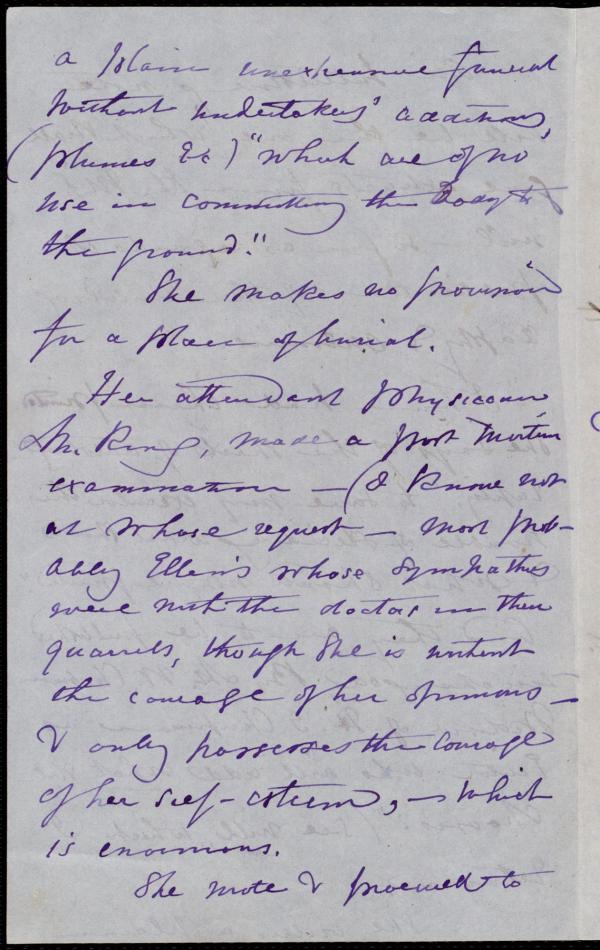 a plain unexpensive funeral
without undertakers' additions,
(plumes &c) "which are of no
use in committing the body to
the ground."
She makes no provision
for a place of burial.
Her attendant physician,
Mr. King, made a post mortem
examination — (I know not
at whose request — most prob-
ably Ellen's whose sympathies
were with the doctor in their
quarrels, though she is without
the courage of her opinions —
& only possesses the courage
of her self-esteem, — which
is enormous.
She wrote & procured to